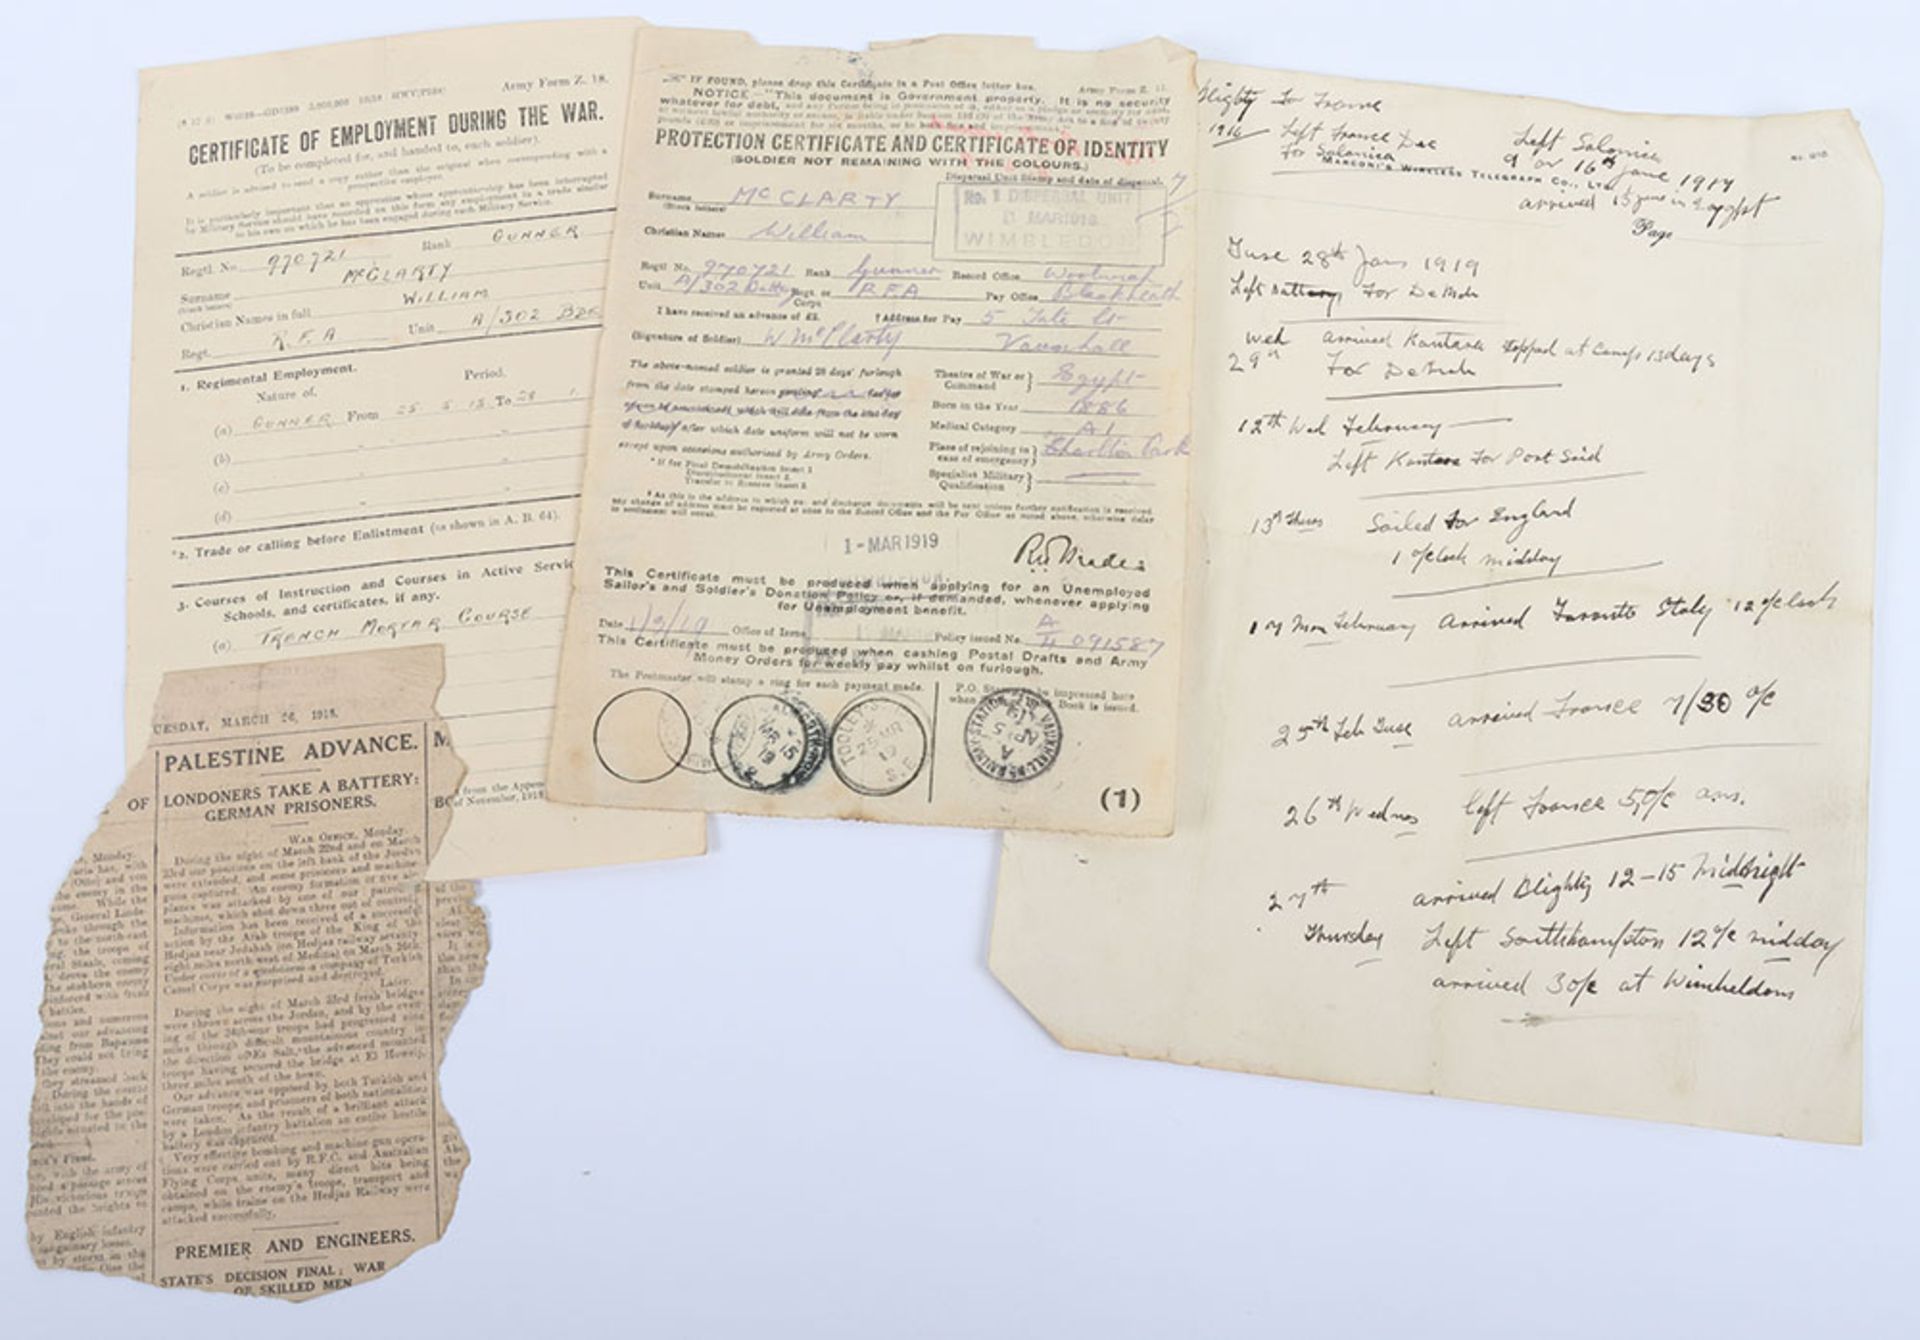 Army Form Z. 18.
CERTIFICATE OF EMPLOYMENT DURING THE WAR.
(To be completed for, and handed to, each soldier).
A soldier is advised to send a copy rather than the original when corresponding with a
prospective employer.
It is particularly important that an apprentice whose apprenticeship has been interrupted
by Military Service should have recorded on this form any employment in a trade similar
to his own on which he has been engaged during such Military Service.
Regtl. No. 970721 Rank GUNNER
Surname McCLARTY
(Block letters)
Christian Names in full WILLIAM
Regt. R.F.A Unit A/302 BDE
1. Regimental Employment.
Nature of. Period.
(a) GUNNER From 25 5 15 To 28 1
(b)
(c)
(d)
*2. Trade or calling before Enlistment (as shown in A. B. 64).
3. Courses of Instruction and Courses in Active Servic
Schools, and certificates, if any.
(a) TRENCH MORTAR COURSE
from the Appen
of November, 1918
IF FOUND, please drop this Certificate in a Post Office letter box.
Army Form Z. 11.
NOTICE.—"This document is Government property. It is no security
whatever for debt,
PROTECTION CERTIFICATE AND CERTIFICATE OF IDENTITY
(SOLDIER NOT REMAINING WITH THE COLOURS.)
Dispersal Unit Stamp and date of dispersal.
No. 1 DISPERSAL UNIT
MAR 1919
WIMBLEDON
Surname McCLARTY
(Block letters)
Christian Names William
Regtl No. 970721 Rank Gunner Record Office Woolwich
Unit A/302 Battery Regt. or Corps R.F.A Pay Office Blackheath
I have received an advance of £2. † Address for Pay 5 Tate St
(Signature of Soldier) W McClarty Vauxhall
The above-named soldier is granted 28 days' furlough
from the date stamped hereon pending
of furlough after which date uniform will not be worn
except upon occasions authorised by Army Orders.
* If for Final Demobilization insert 1
Disembodiment insert 2
Transfer to Reserve insert 3
Theatre of War or Command Egypt
Born in the Year 1886
Medical Category A1
Place of rejoining in case of emergency Charlton Park
Specialist Military Qualification
† As this is the address to which pay and discharge documents will be sent unless further notification is received
any change of address must be reported at once to the Record Office and the Pay Office as noted above, otherwise delay
in settlement will occur.
1-MAR 1919
This Certificate must be produced when applying for an Unemployed
Sailor's and Soldier's Donation Policy or, if demanded, whenever applying
for Unemployment benefit.
Date 1/3/19 Office of Issue Policy issued No. A 091587
This Certificate must be produced when cashing Postal Drafts and Army
Money Orders for weekly pay whilst on furlough.
The Postmaster will stamp a ring for each payment made.
P.O. Stamp to be impressed here
when Book is issued.
MR 15
19
TOOLEY ST
25 MR
19
S.E.
A
AP 5
19
(1)
Blighty to France
1916 Left France Dec
For Salonica
Left Salonica
9 or 16th June 1917
arrived 15 June in Egypt
MARCONI'S WIRELESS TELEGRAPH CO., LTD
Page
Tuse 28th Jan 1919
Left Battery for Detrah
Wed 29th arrived Kantara stopped at Camp 13 days
For Detrah
12th Wed February
Left Kantara For Port Said
13th Thurs Sailed for England
1 o'clock midday
17 Mon February arrived Taranto Italy 12 o'clock
25th Feb Tuse arrived France 7/30 o/c
26th Wednes left France 5 o/c a.m.
27th Thursday arrived Blighty 12-15 Midnight
Left Southhampton 12 o/c midday
arrived 3 o/c at Wimbeldon
UESDAY, MARCH 26, 1918.
PALESTINE ADVANCE.
LONDONERS TAKE A BATTERY:
GERMAN PRISONERS.
WAR OFFICE, Monday.
During the night of March 22nd and on March
23rd our positions on the left bank of the Jordan
were extended, and some prisoners and machine-
guns captured. An enemy formation of five air-
planes was attacked by one of our patrolling
machines, which shot down three out of control.
Information has been received of a successful
action by the Arab troops of the King of the
Hedjaz near Jedahah (on Hedjaz railway seventy-
eight miles north-west of Medina) on March
Under cover of a a company of Turkish
Camel Corps was surprised and destroyed.
Later.
During the night of March 23rd fresh bridges
were thrown across the Jordan, and by the even-
ing of the 24th our troops had progressed nine
miles through difficult mountainous country in
the direction of Es Salt, the advanced mounted
troops having secured the bridge at El Howeij,
three miles south of the town.
Our advance was opposed by both Turkish and
German troops, and prisoners of both nationalities
were taken. As the result of a brilliant attack
by a London infantry battalion an entire hostile
battery was captured.
Very effective bombing and machine gun opera-
tions were carried out by R.F.C. and Australian
Flying Corps units, many direct hits being
obtained on the enemy's troops, transport and
camps, while trains on the Hedjaz Railway were
attacked successfully.
PREMIER AND ENGINEERS.
STATE'S DECISION FINAL: WAR
OF SKILLED MEN